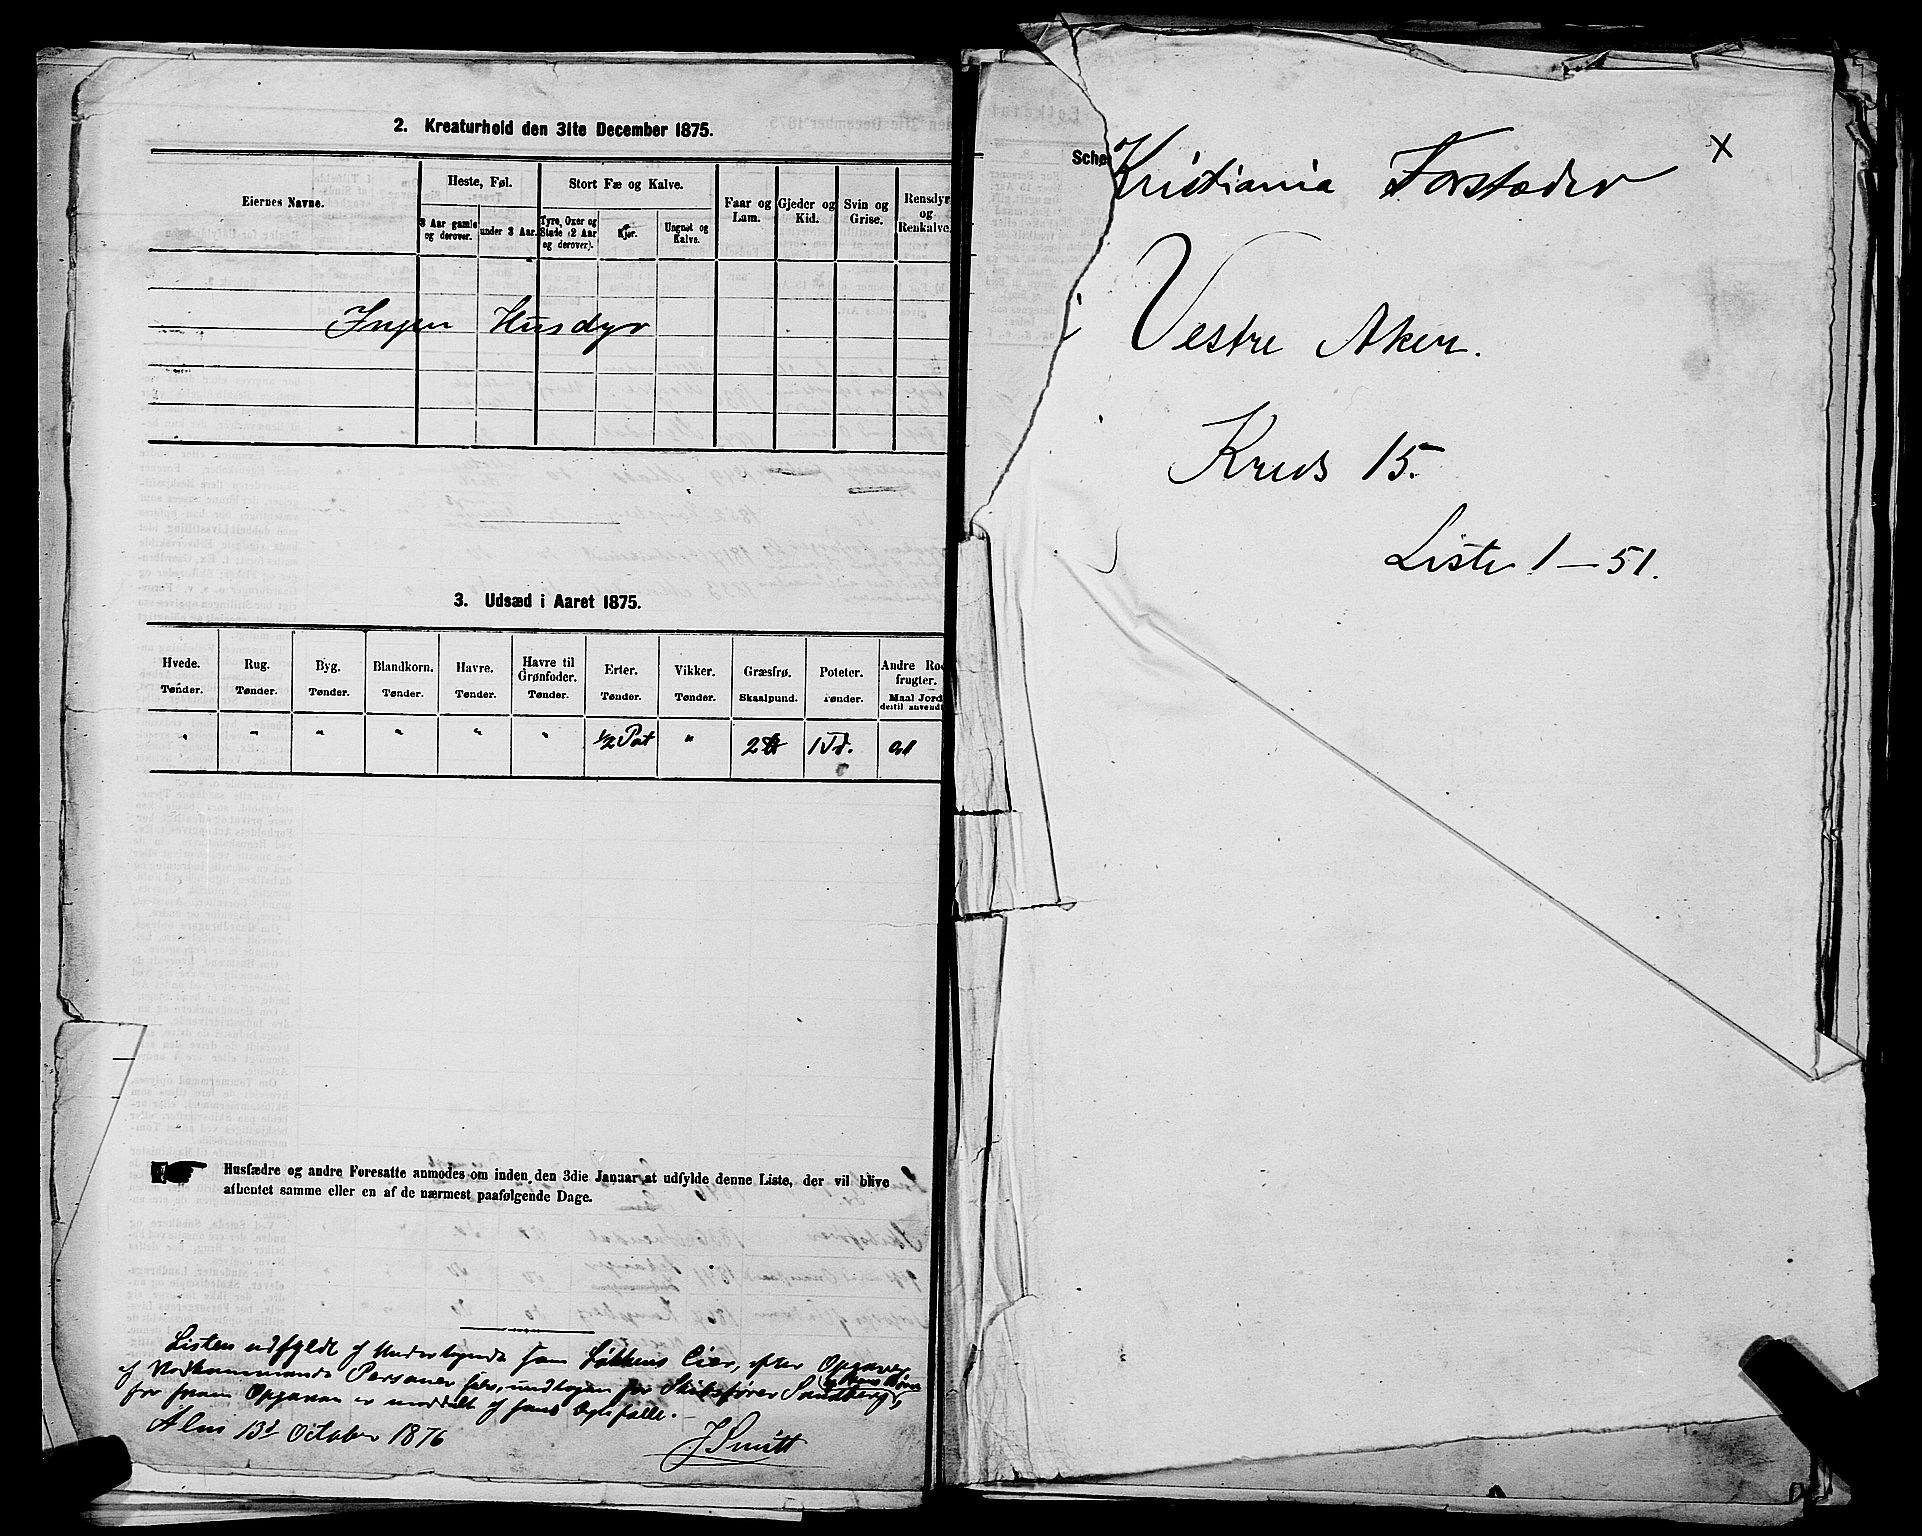 2. Kreaturhold den 31te December 1875.
Eiernes Navne.
Heste, Føl.
Stort Fæ og Kalve.
Faar og Lam.
Gjeder og Kid.
Svin og Grise.
Rensdyr og Renkalve.
3 Aar gamle og derover.
under 3 Aar.
Tyre, Oxer og Stude (2 Aar og derover).
Kjør.
Ungnøt og Kalve.
Ingen Husdyr
3. Udsæd i Aaret 1875.
Hvede. Rug. Byg. Blandkorn. Havre. Havre til Grønfoder. Erter. Vikker. Græsfrø. Poteter. Andre Rod frugter.
Tønder. Tønder. Tønder. Tønder. Tønder. Tønder. Tønder. Tønder. Skaalpund. Tønder. Maal Jord dertil anvendt
" " " " " " ½ Pot " 2 ℔ 1 Td.
Husfædre og andre Foresatte anmodes om inden den 3die Januar at udfylde denne Liste, der vil blive
afhentet samme eller en af de nærmest paafølgende Dage.
Listen udfyldt af Undertegnede som Løkkens Eier, efter Opgaver
af Vedkommende Personer selv, undtagen for Skibsfører Sandberg,
for hvem Opgaven er meddelt af hans
13d October 1876
J Smitt
Sche
Kristiania Forstæder x
Vestre Aker.
Kreds 15.
Liste 1–51.